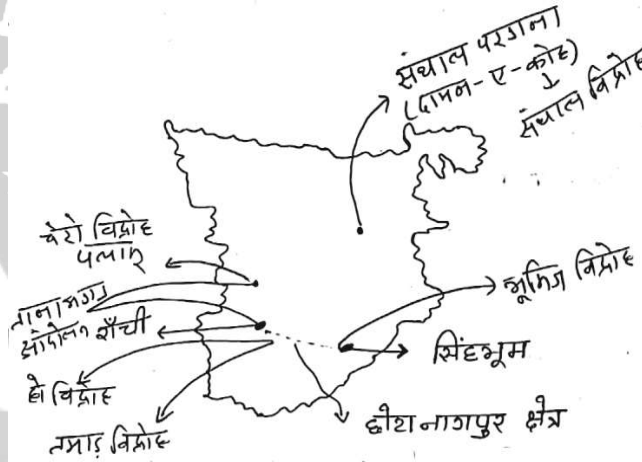 संथाल परगना
(दामन-ए-कोह)
↓
संथाल विद्रोह
चेरो विद्रोह
पलामू
ताना भगत
आंदोलन
राँची
हो विद्रोह
तमाड़ विद्रोह
भूमिज विद्रोह
सिंहभूम
छोटानागपुर क्षेत्र